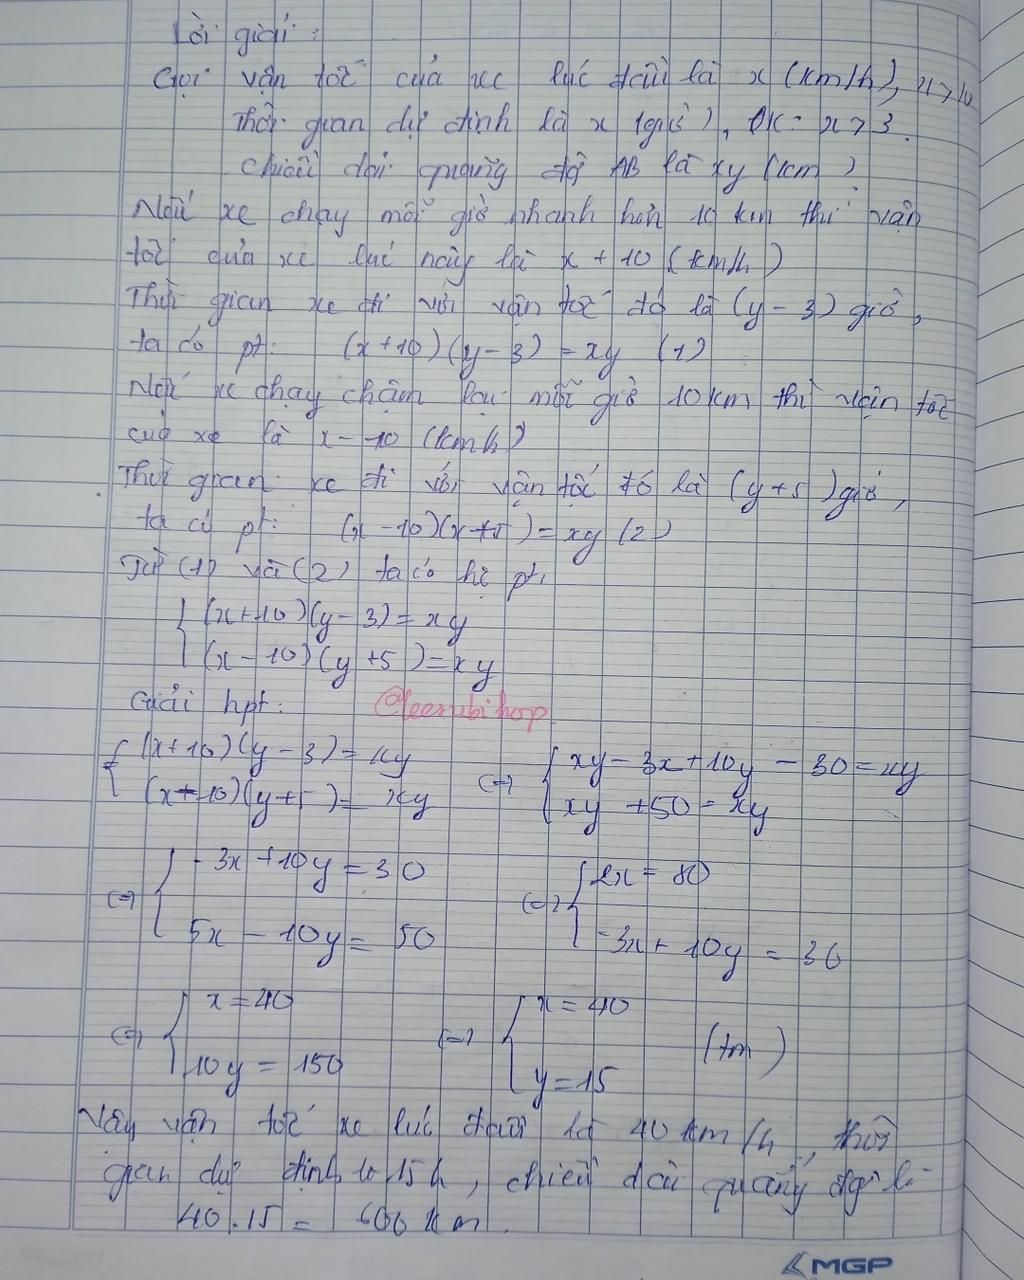 Lời giải:
Gọi vận tốc của xe lúc đầu là x (km/h), x > 10
Thời gian dự định là x (giờ), ĐK: x > 3.
Chiều dài quãng đg AB là xy (km)
Nếu xe chạy mỗi giờ nhanh hơn 10 km thì vận
tốc của xe lúc này là x + 10 (km/h)
Thời gian xe đi với vận tốc đó là (y - 3) giờ,
ta có pt: (x+10)(y-3) = xy (1)
Nếu xe chạy chậm lại mỗi giờ 10 km thì vận tốc
của xe là x - 10 (km/h)
Thời gian xe đi với vận tốc đó là (y+5) giờ,
ta có pt: (x-10)(x+5) = xy (2)
Từ (1) và (2) ta có hệ pt:
(x+10)(y-3) = xy
(x-10)(y+5) = xy
Giải hpt: @leesubihop
(x+10)(y-3) = xy <=> xy - 3x + 10y - 30 = xy
(x-10)(y+5) = xy xy + 50 = xy
<=> -3x + 10y = 30 <=> 2x = 80
5x - 10y = 50 -3x + 10y = 30
<=> x = 40 <=> x = 40 (tm)
10y = 150 y = 15
Vậy vận tốc xe lúc đầu là 40 km/h, thời
gian dự định là 15h, chiều dài quãng đg là
40.15 = 600 km.
MGP